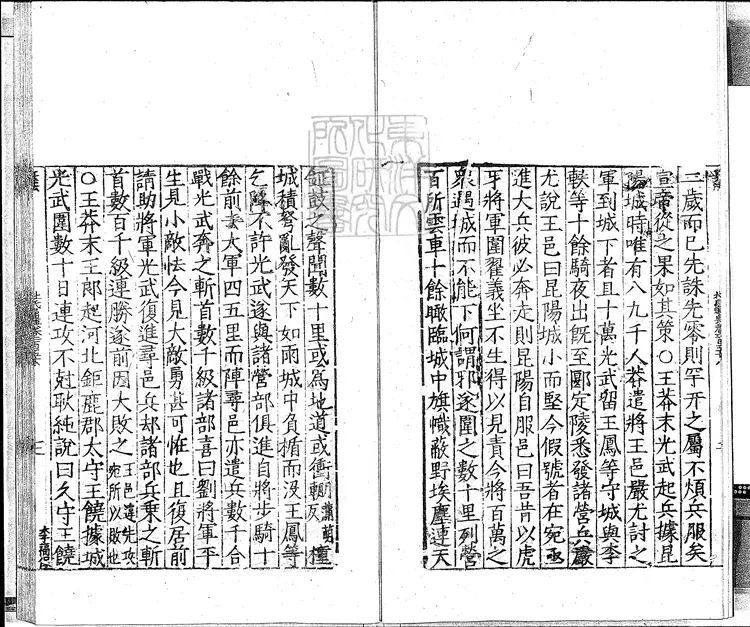 三歲而已先誅先零則罕开之屬不煩兵服矣
宣帝從之果如其策○王莽末光武起兵據昆
陽城時唯有八九千人莽遣將王邑嚴尤討之
軍到城下者且十萬光武留王鳳等守城與李
軼等十餘騎夜出旣至郾定陵悉發諸營兵嚴
尤說王邑曰昆陽城小而堅今假號者在宛亟
進大兵彼必奔走宛敗則昆陽自服邑曰吾昔以虎
牙將軍圍翟義坐不生得以見責今將百萬之
衆遇城而不能下何謂邪遂圍之數十里列營
百所雲車十餘瞰臨城中旗幟蔽野埃塵連天
鉦鼓之聲聞數十里或爲地道或衝輣 橦
城積弩亂發天下如雨城中負楯而汲王鳳等
乞降不許光武遂與諸營部俱進自將步騎十
餘前去大軍四五里而陣尋邑亦遣兵數千合
戰光武奔之斬首數千級諸部喜曰劉將軍平
生見小敵怯今見大敵勇甚可怪也且復居前
請助將軍光武復進尋邑兵却諸部兵乘之斬
首數百千級連勝遂前因大敗之王邑違先攻宛所以敗也
○王莽末王郎起河北鉅鹿郡太守王饒據城
光武圍數十日連攻不尅耿純說曰久守王饒